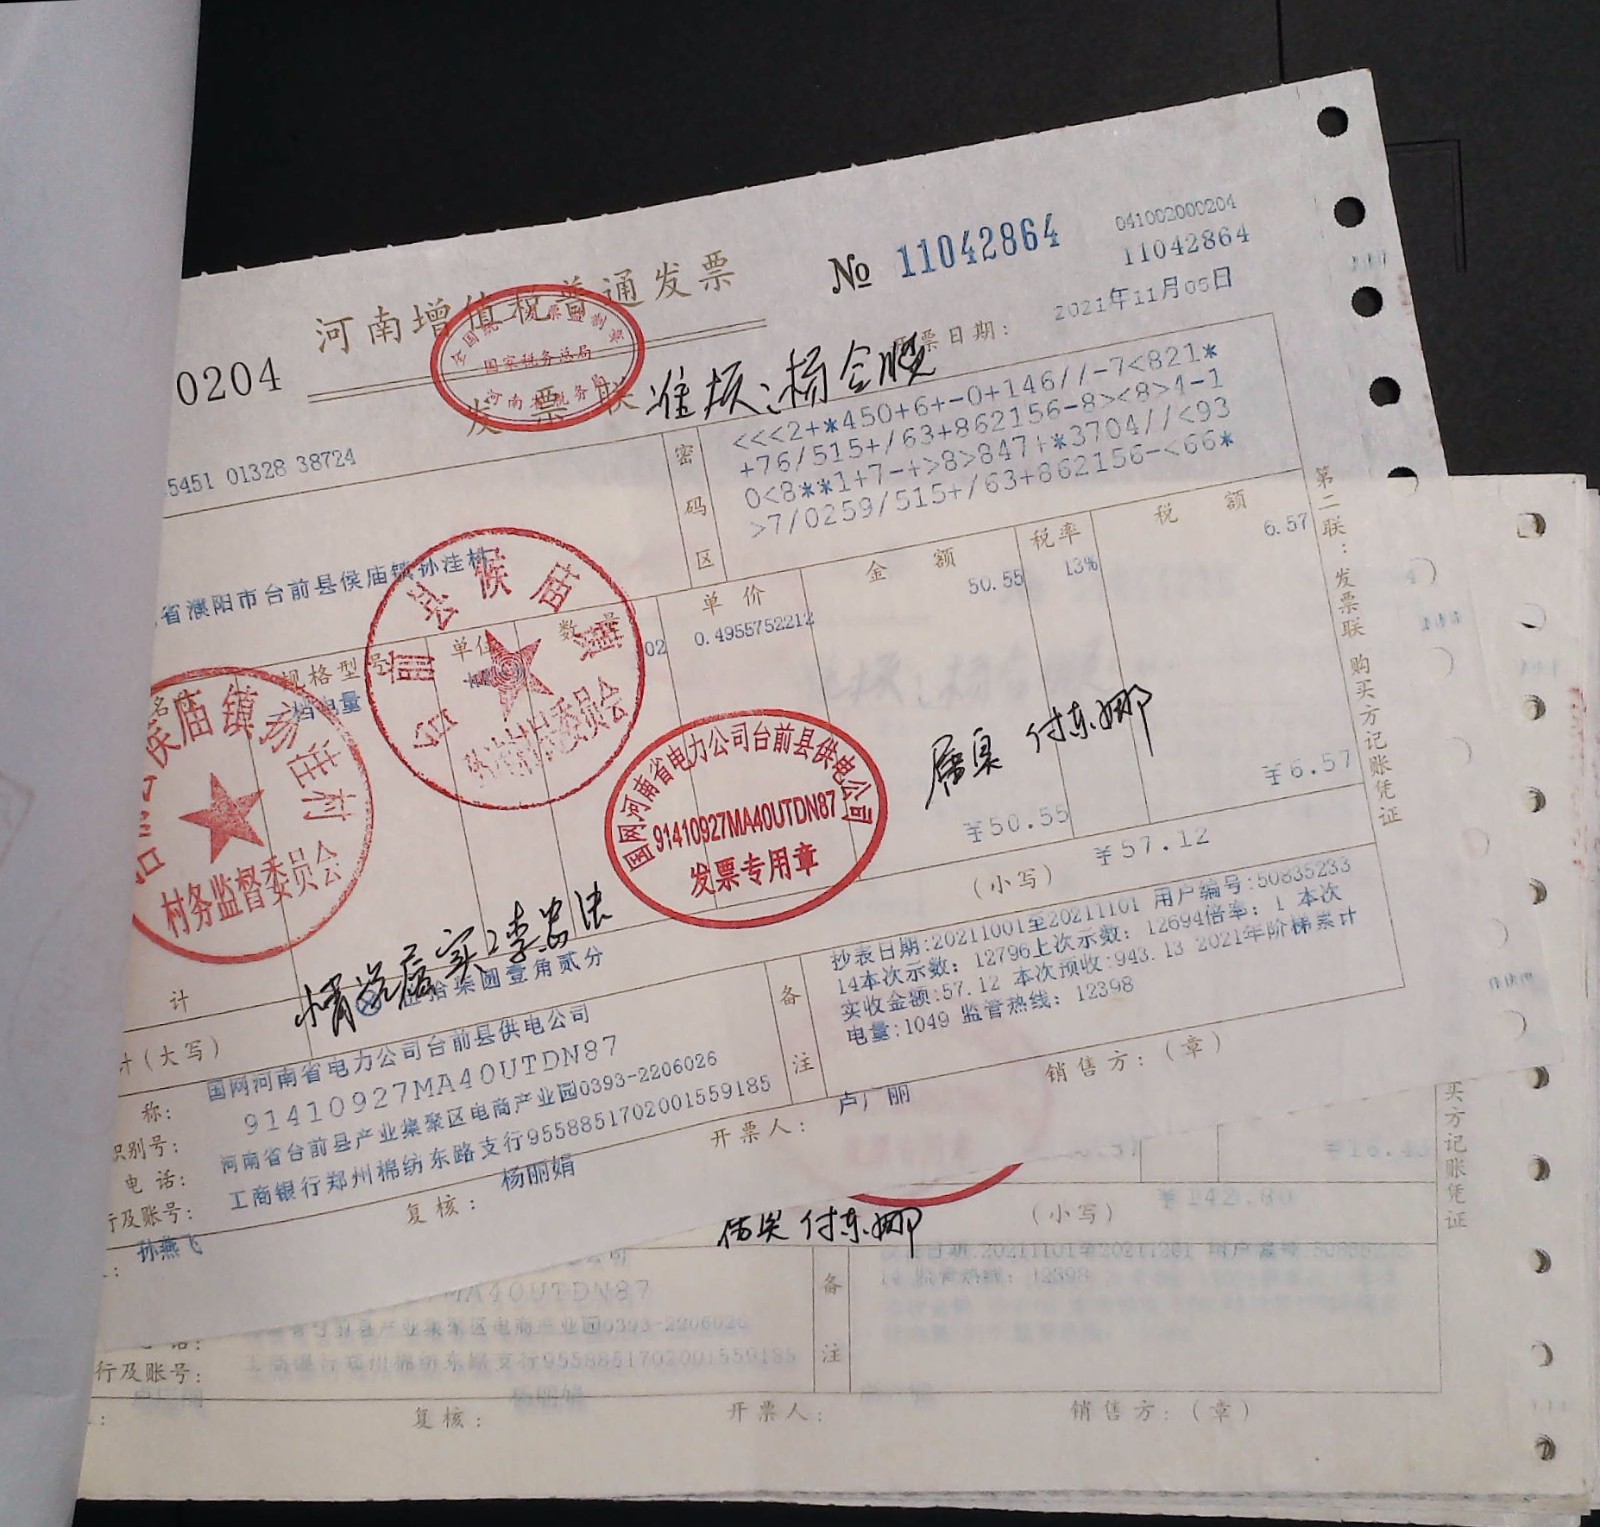 河南增值税普通发票
№ 11042864
041002000204
11042864
0204
发票联
开票日期：
2021年11月05日
准报：杨合顺
5451 01328 38724
密码区
<<<2+*450+6+-0+146//-7<821*
+76/515+/63+862156-8><8>4-1
0<8**1+7-+>8>847+*3704//<93
>7/0259/515+/63+862156-<66*
省濮阳市台前县侯庙镇孙洼村
规格型号
单位
数量
单价
金额
税率
税额
电量
02
0.4955752212
50.55
13%
6.57
第二联：发票联 购买方记账凭证
侯庙镇孙洼村
村务监督委员会
县侯庙镇
村村民委员会
国网河南省电力公司台前县供电公司
91410927MA40UTDN87
发票专用章
属实 付东娜
¥50.55
¥6.57
计
计(大写)
伍拾柒圆壹角贰分
(小写)
¥57.12
情况属实：李忠法
称：
国网河南省电力公司台前县供电公司
识别号：
91410927MA40UTDN87
电话：
河南省台前县产业集聚区电商产业园0393-2206026
行及账号：
工商银行郑州棉纺东路支行9558851702001559185
备注
抄表日期:20211001至20211101 用户编号:50835233
14本次示数：12796上次示数：12694倍率：1 本次
实收金额:57.12 本次预收:943.13 2021年阶梯累计
电量:1049 监管热线：12398
孙燕飞
复核：
杨丽娟
开票人：
卢广丽
销售方：(章)
买方记账凭证
(小写)
¥142.80
付东娜
MA40UTDN87
产业集聚区电商产业园0393-2206026
行及账号：
工商银行郑州棉纺东路支行9558851702001559185
备注
12398
复核：
开票人：
销售方：(章)